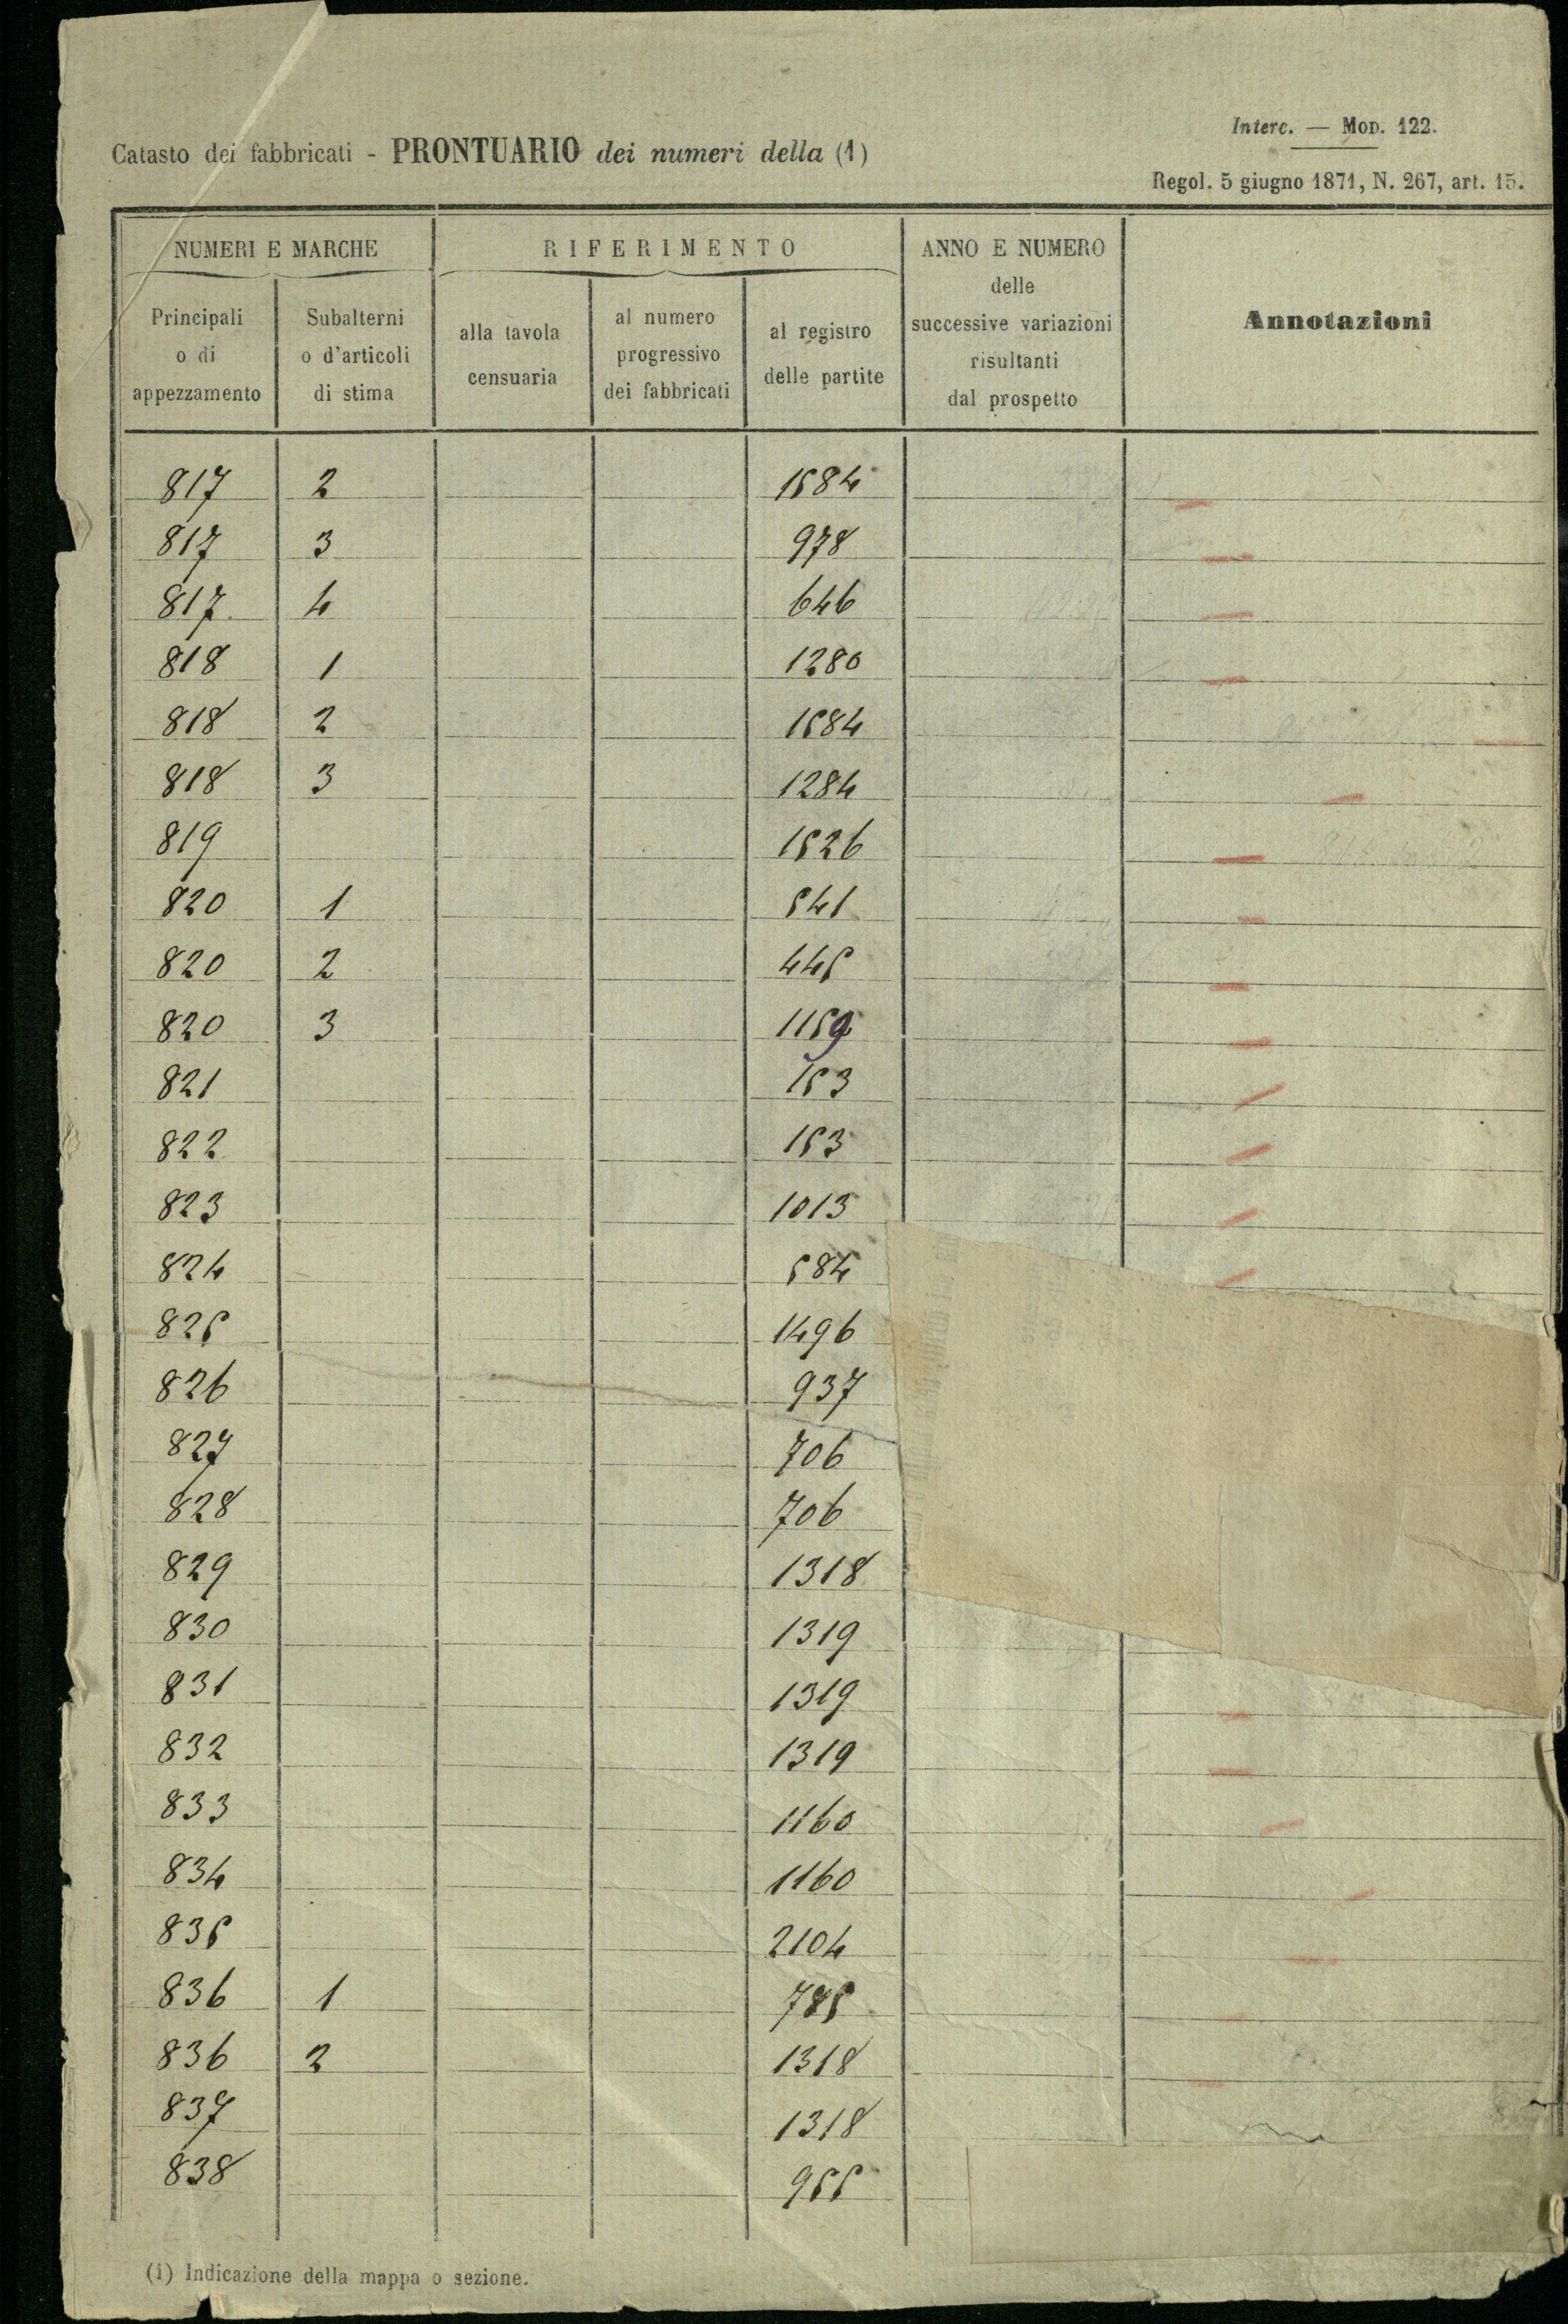 Interc. — Mod. 122.
Catasto dei fabbricati - PRONTUARIO dei numeri della (1)
Regol. 5 giugno 1871, N. 267, art. 15.
NUMERI E MARCHE
RIFERIMENTO
ANNO E NUMERO
delle
successive variazioni
risultanti
dal prospetto
Annotazioni
Principali
o di
appezzamento
Subalterni
o d'articoli
di stima
alla tavola
censuaria
al numero
progressivo
dei fabbricati
al registro
delle partite
817 2 1584
817 3 978
817 4 646
818 1 1280
818 2 1584
818 3 1284
819 1526
820 1 541
820 2 445
820 3 1159
821 153
822 153
823 1013
824 584
825 1496
826 937
827 706
828 706
829 1318
830 1319
831 1319
832 1319
833 1160
834 1160
835 2104
836 1
836 2 1318
837 1318
838 955
(1) Indicazione della mappa o sezione.